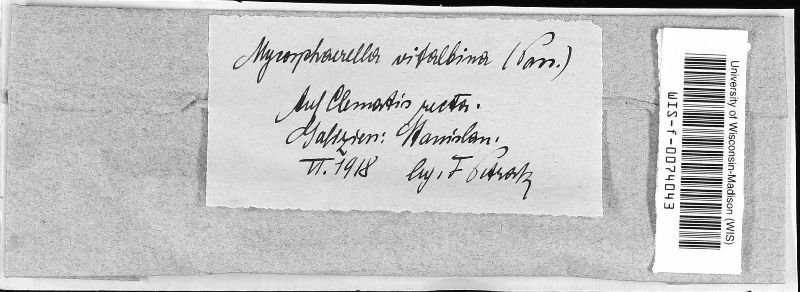 Mycosphaerella vitalbina (Pass.)
Auf Clematis recta.
Galizien: Stanislau.
VI. 1918 leg. F. Petrak
University of Wisconsin-Madison (WIS)
WIS-f-0074043